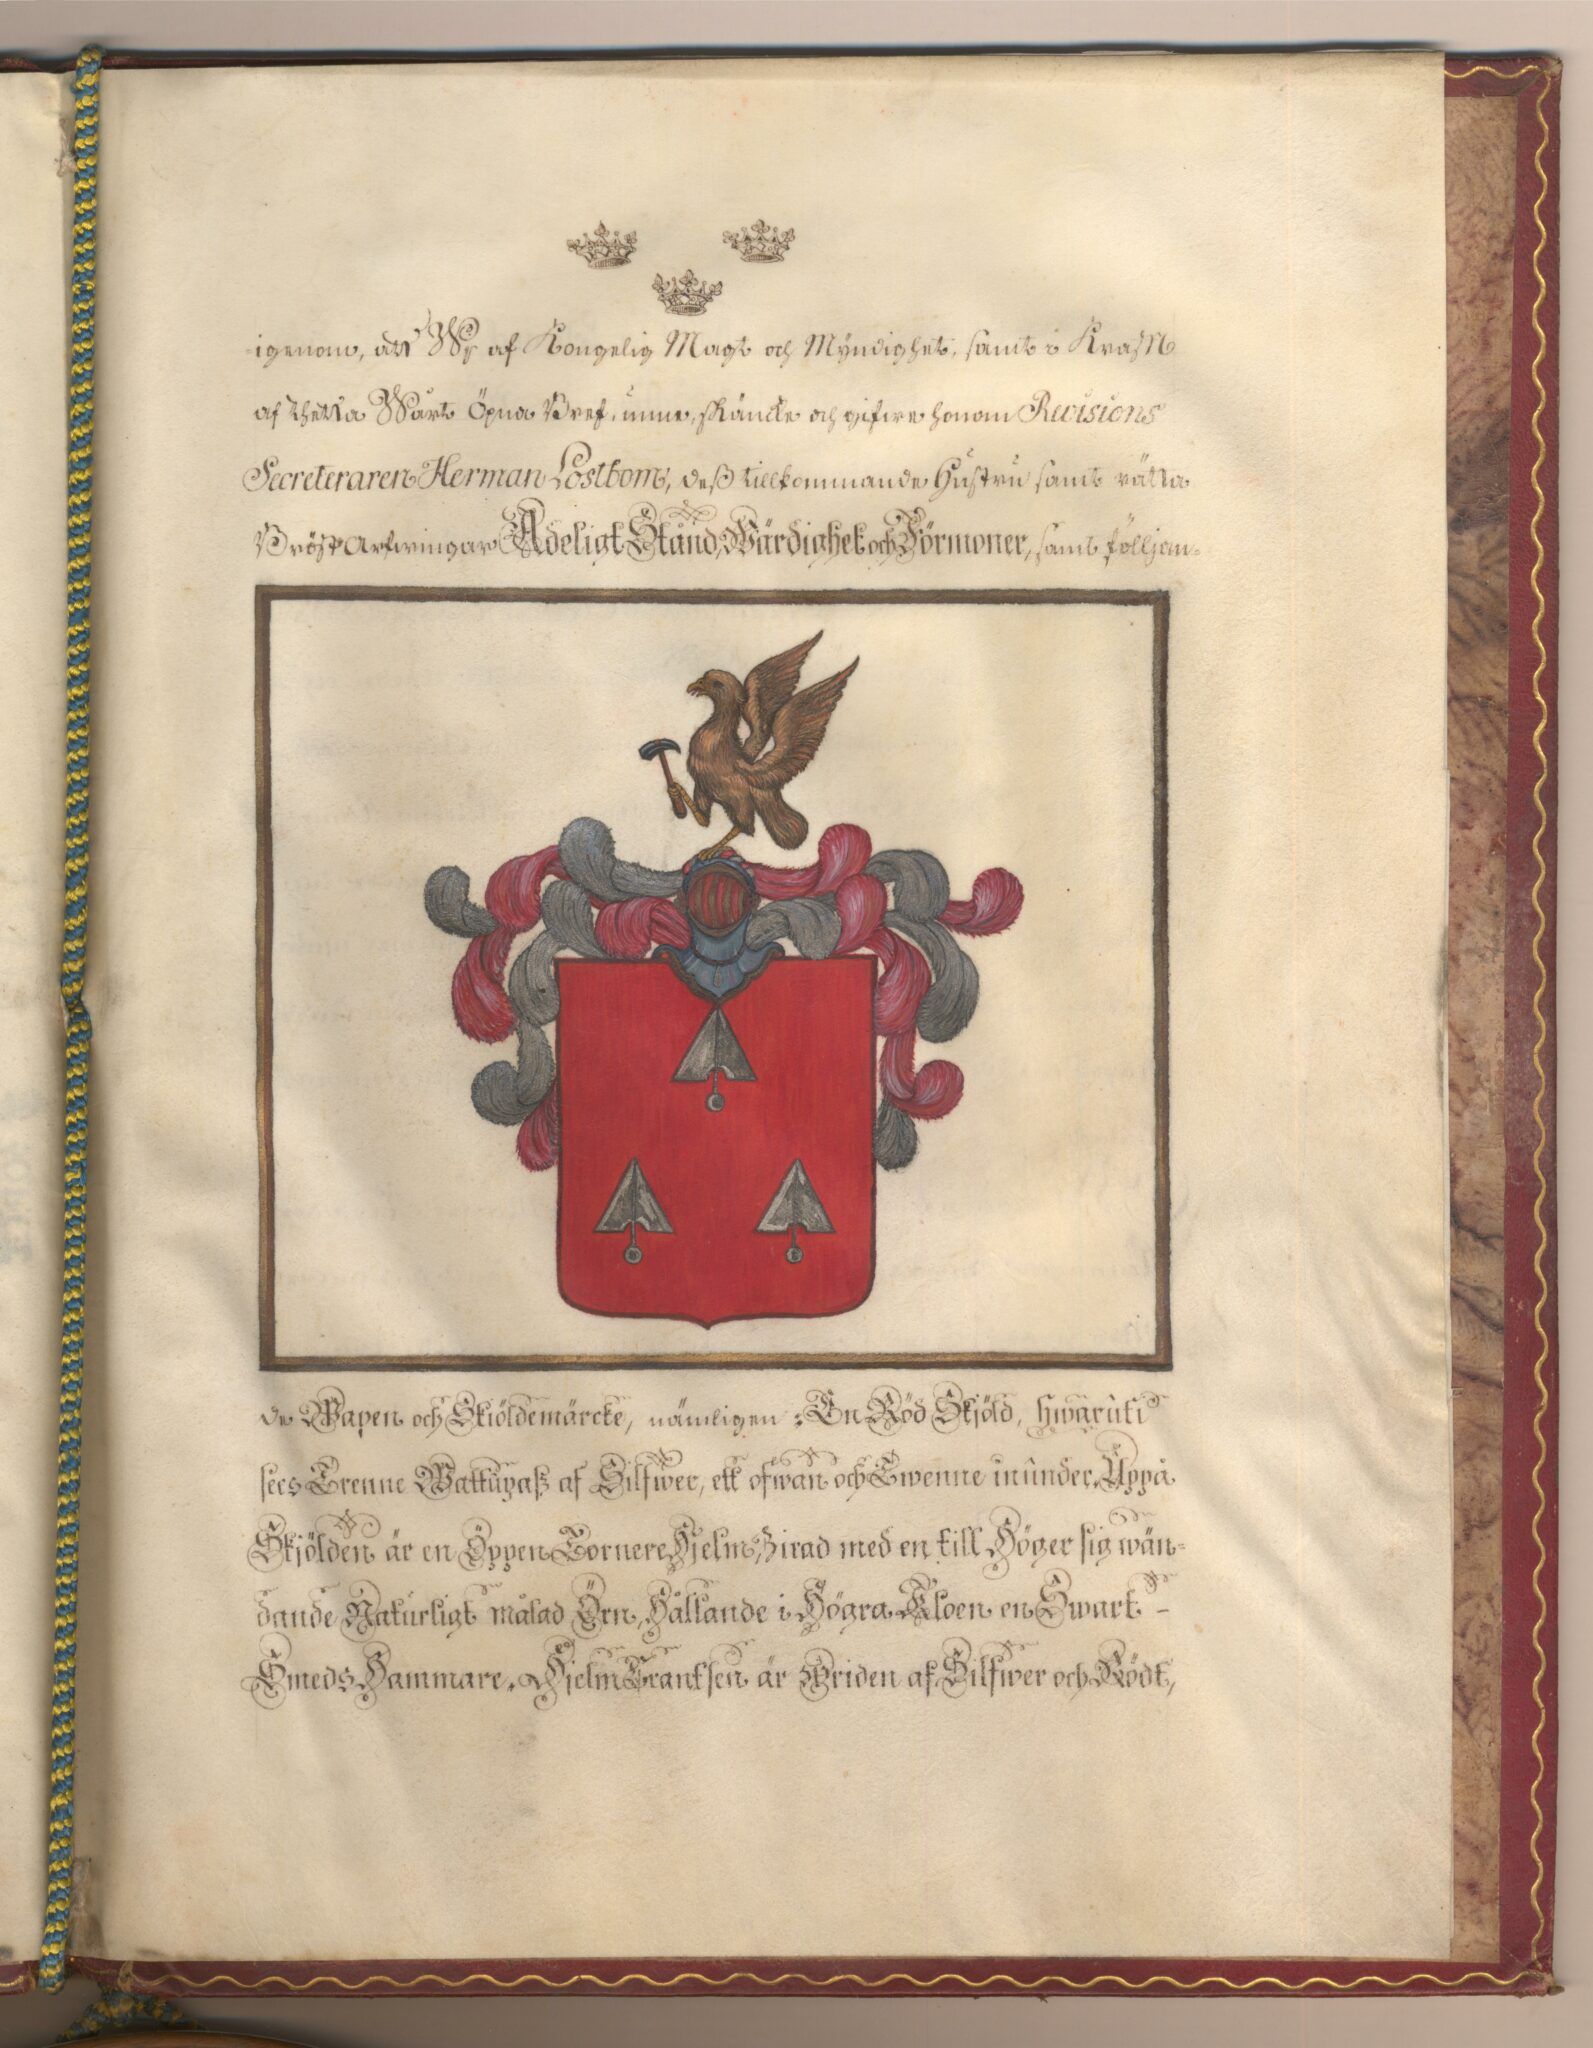 igenom, att Wy af Kongelig Magt och Myndighet, samt i Krafft
af thetta Wårt Öpna Bref, unne, skäncke och gifwe honom Revisions
Secreteraren Herman Lostbom, deß tillkommande Hustru samt rätta
Bröst Arfwingar Adeligt Stånd, Wärdighet och Förmoner, samt följjan-
de Wapen och Skiöldemärcke, nämligen: En Röd Skjöld, hwaruti
sees Trenne Wattupaß af Silfwer, ett ofwan och Twenne inunder. Uppå
Skjölden är en Öppen Tornere Hjelm, Zirad med en till Höger sig wän-
dande Naturligt målad Örn, Hållande i Högra Kloen en Swart -
Smeds Hammare. Hjelm Crantsen är Wriden af Silfwer och Rödt,